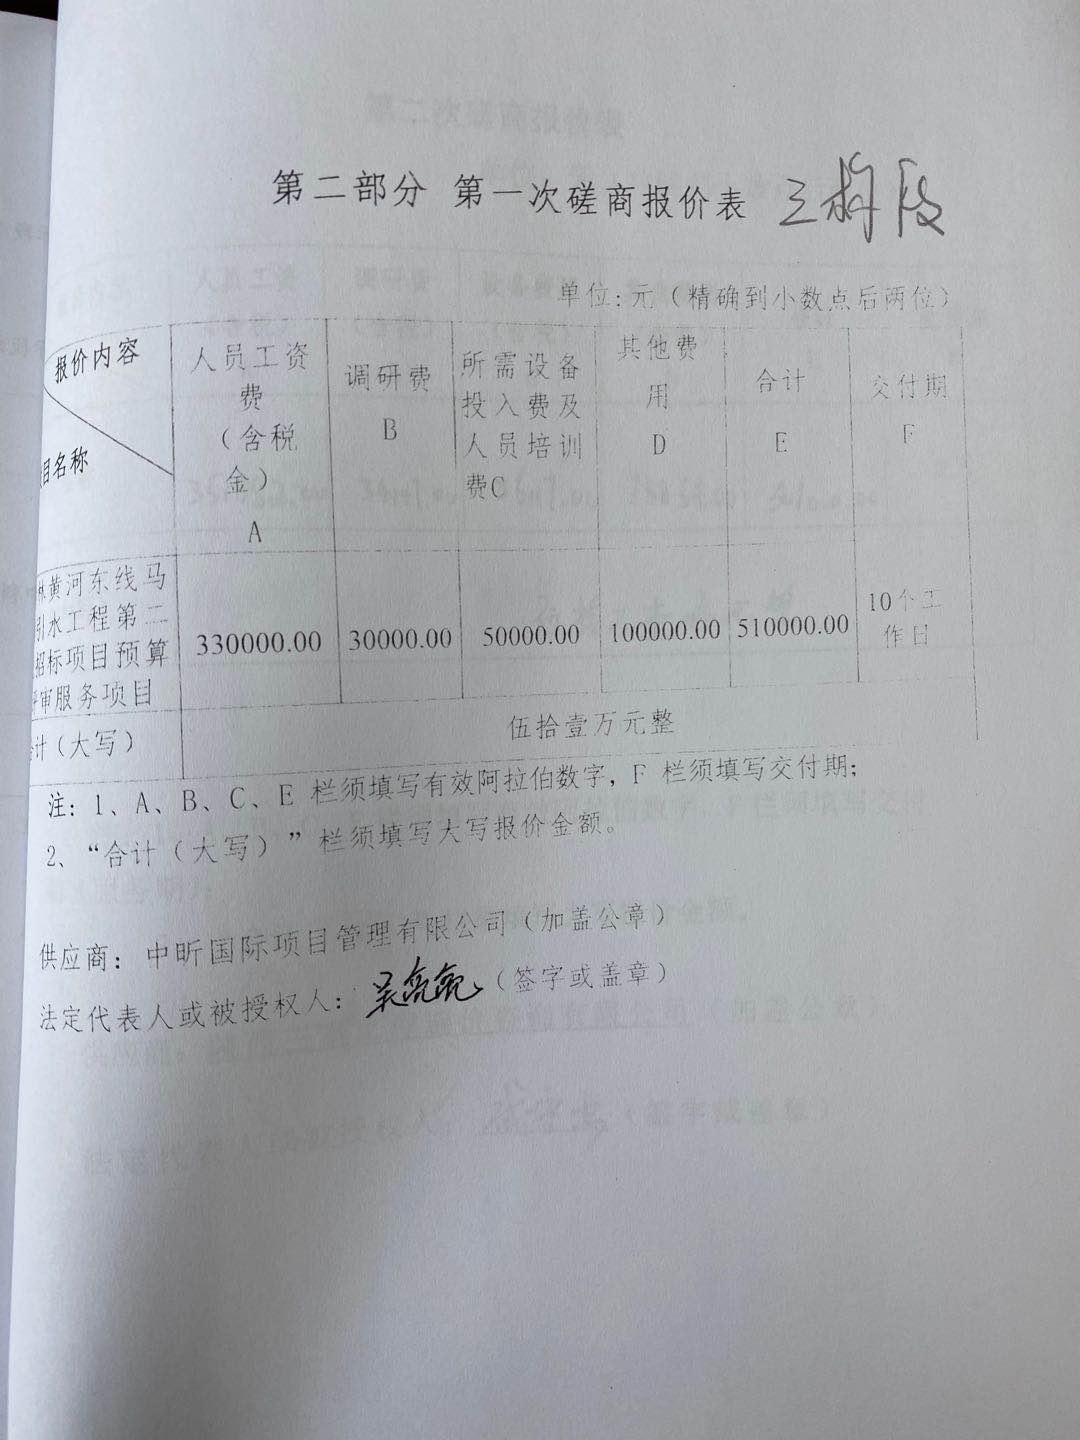 第二部分 第一次磋商报价表 三标段
单位:元（精确到小数点后两位）
报价内容
目名称
人员工资
费
（含税
金）
A
调研费
B
所需设备
投入费及
人员培训
费C
其他费
用
D
合计
E
交付期
F
黄河东线马
引水工程第二
招标项目预算
评审服务项目
330000.00
30000.00
50000.00
100000.00
510000.00
10个工
作日
计（大写）
伍拾壹万元整
注: 1、A、B、C、E 栏须填写有效阿拉伯数字，F 栏须填写交付期；
2、“合计（大写）”栏须填写大写报价金额。
供应商：中昕国际项目管理有限公司（加盖公章）
法定代表人或被授权人：（签字或盖章）